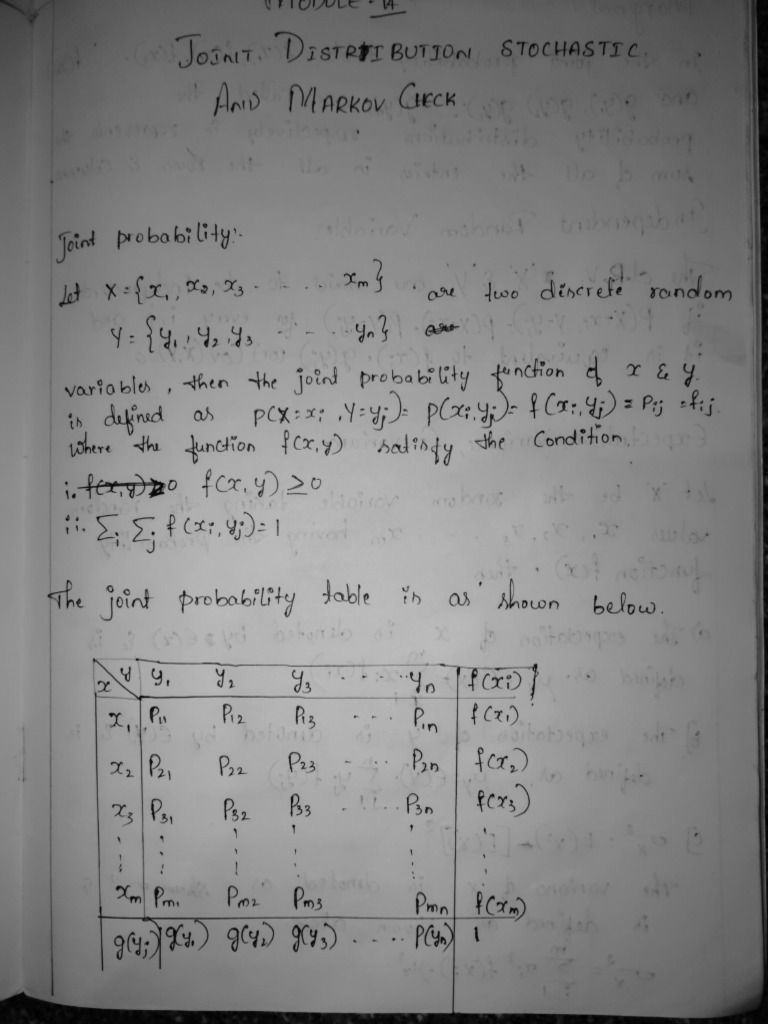 MODULE-
JOINT. DISTRIBUTION STOCHASTIC
AND MARKOV CHECK
Joint probability:-
Let X = {x₁, x₂, x₃ - - - - xₘ} are two discrete random
Y = {y₁, y₂, y₃ - - - - yₙ}
variables, then the joint probability function of x & y
is defined as P(X=xᵢ, Y=yⱼ) = P(xᵢ,yⱼ) = f(xᵢ,yⱼ) = Pᵢⱼ = fᵢⱼ
Where the function f(x,y) satisfy the Condition.
i. f(x,y) ≥ 0
ii. Σᵢ Σⱼ f(xᵢ,yⱼ) = 1
The joint probability table is as shown below.
x y y₁ y₂ y₃ - - - - yₙ f(xᵢ)
x₁ P₁₁ P₁₂ P₁₃ - - - P₁ₙ f(x₁)
x₂ P₂₁ P₂₂ P₂₃ - - - P₂ₙ f(x₂)
x₃ P₃₁ P₃₂ P₃₃ - - - P₃ₙ f(x₃)
xₘ Pₘ₁ Pₘ₂ Pₘ₃ Pₘₙ f(xₘ)
g(yⱼ) g(y₁) g(y₂) g(y₃) - - - - P(yₙ) 1